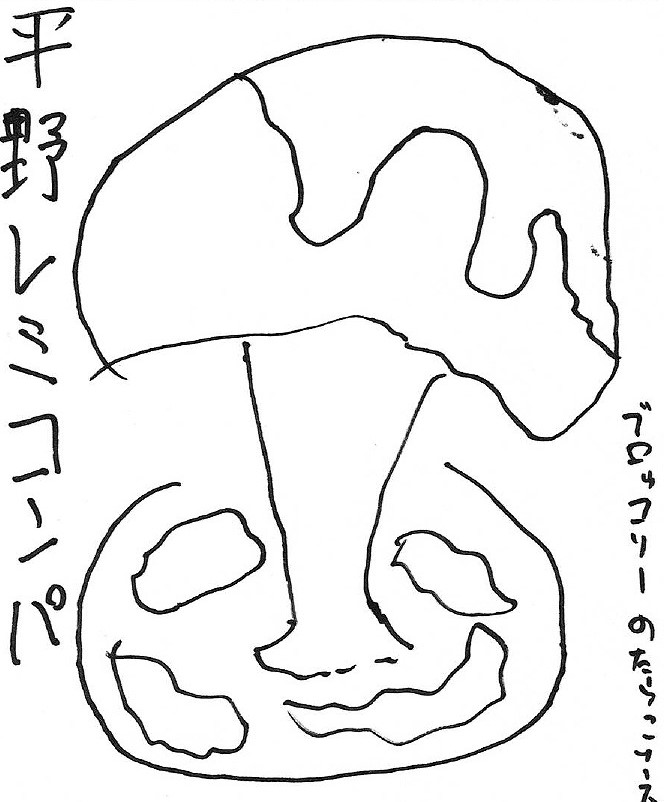 平野レミコンパ
ブロッコリーのたらこソース